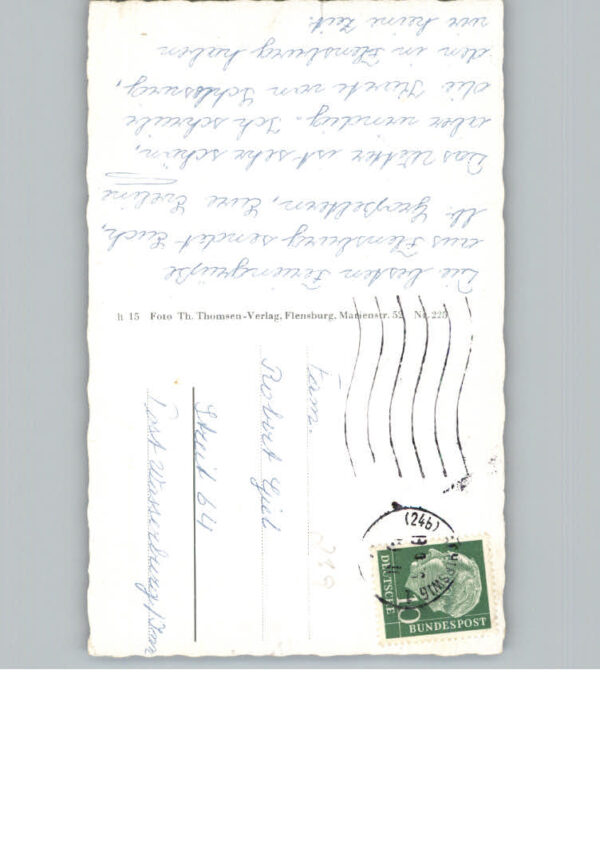 Die besten Feriengrüße
aus Flensburg sendet Euch,
lb. Großeltern, Eure Eveline
Das Wetter ist sehr schön,
aber windig. Ich schreibe
die Karte von Schleswig,
den in Flensburg haben
wir keine Zeit.
h 15 Foto Th. Thomsen-Verlag, Flensburg, Marienstr. 52 Nr. 225
Fam.
Robert
Streit 64
Post Wasserburg/Inn
(24b)
SCHLESWIG
10
DEUTSCHE
BUNDESPOST